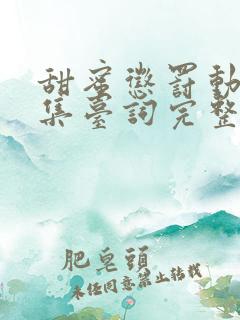 甜蜜懲罰動
集臺詞完整
肥皂頭
未經同意禁止轉載